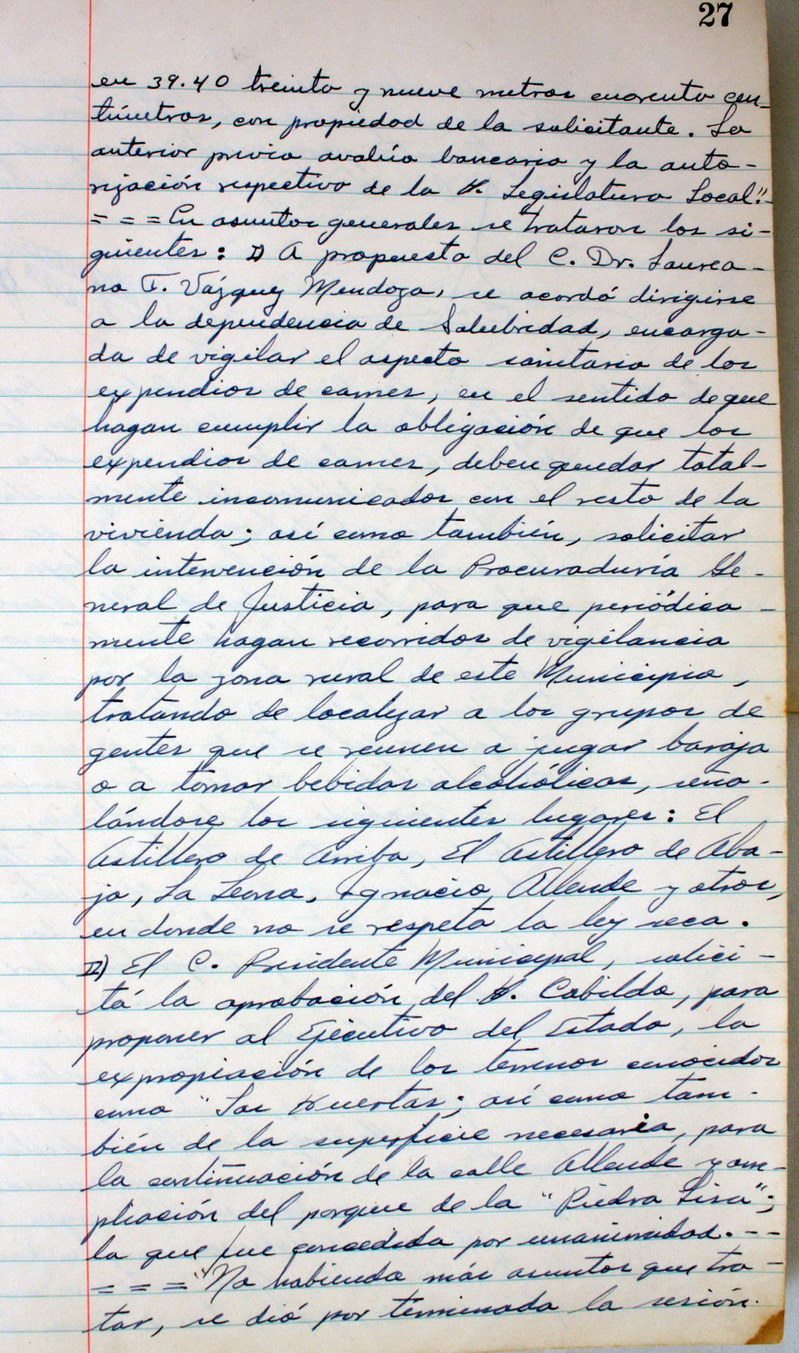 27
en 39.40 treinta y nueve metros cuarenta cen-
tímetros, con propiedad de la solicitante. La
anterior previo avalúo bancario y la auto-
rización respectiva de la H. Legislatura Local."-
= = = En asuntos generales se trataron los si-
guientes: I) A propuesta del C. Dr. Laurea-
no T. Vázquez Mendoza, se acordó dirigirse
a la dependencia de Salubridad, encarga-
da de vigilar el aspecto sanitario de los
expendios de carnes, en el sentido de que
hagan cumplir la obligación de que los
expendios de carnes, deben quedar total-
mente incomunicados con el resto de la
vivienda; así como también, solicitar
la intervención de la Procuraduría Ge-
neral de Justicia, para que periódica-
mente hagan recorridos de vigilancia
por la zona rural de este Municipio,
tratando de localizar a los grupos de
gentes que se reunen a jugar baraja
o a tomar bebidas alcohólicas, seña-
lándose los siguientes lugares: El
Astillero de Arriba, El Astillero de Aba-
jo, La Leona, Ignacio Allende y otros,
en donde no se respeta la ley seca.
II) El C. Presidente Municipal, solici-
tó la aprobación del H. Cabildo, para
proponer al Ejecutivo del Estado, la
expropiación de los terrenos conocidos
como "Las Huertas; así como tam-
bién de la superficie necesaria, para
la continuación de la calle Allende y am-
pliación del parque de la "Piedra Lisa";
la que fue concedida por unanimidad. - -
= = = "No habiendo más asuntos que tra-
tar, se dió por terminada la sesión.